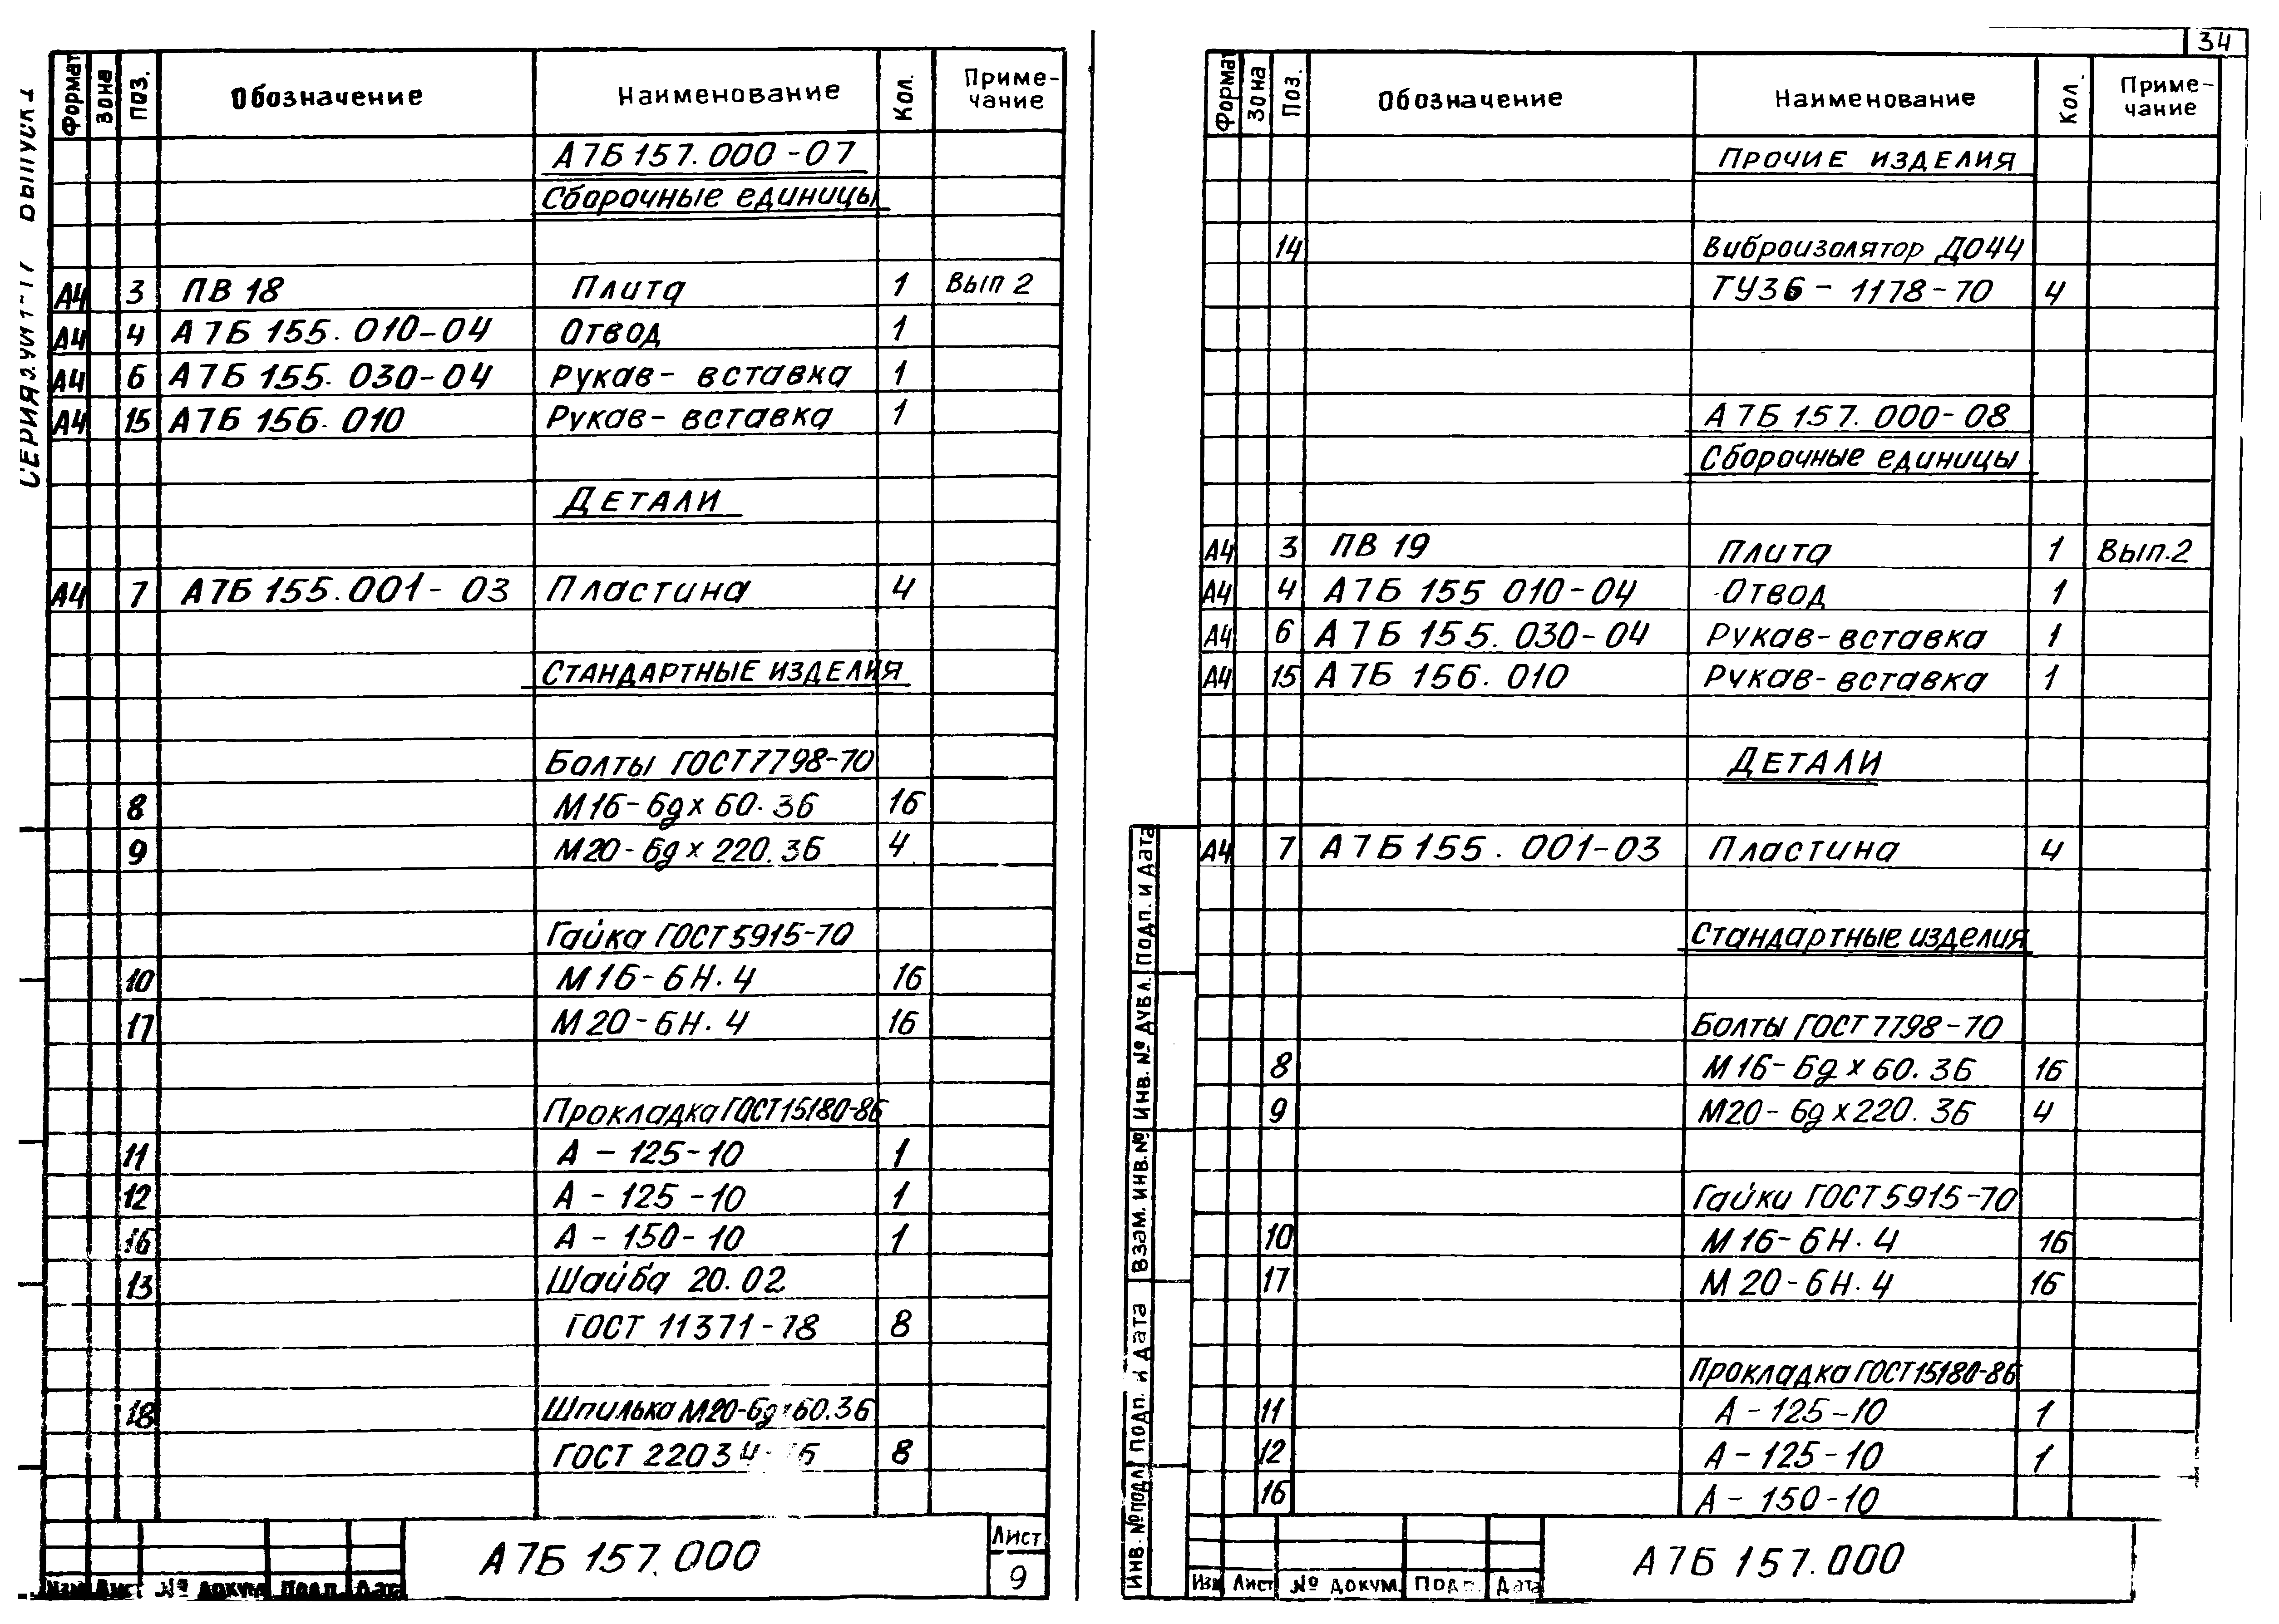 34
Формат Зона Поз. Обозначение Наименование Кол. Приме-чание
А7Б157.000-07
Сборочные единицы
А4 3 ПВ 18 Плита 1 Вып 2
А4 4 А7Б 155.010-04 Отвод 1
А4 6 А7Б 155.030-04 Рукав-вставка 1
А4 15 А7Б 156.010 Рукав-вставка 1
ДЕТАЛИ
А4 7 А7Б 155.001-03 Пластина 4
СТАНДАРТНЫЕ ИЗДЕЛИЯ
Болты ГОСТ7798-70
8 М16-6gх60.36 16
9 М20-6gх220.36 4
Гайка ГОСТ5915-70
10 М16-6Н.4 16
17 М20-6Н.4 16
Прокладка ГОСТ15180-86
11 А-125-10 1
12 А-125-10 1
16 А-150-10 1
13 Шайба 20.02
ГОСТ 11371-78 8
18 Шпилька М20-6gх60.36
ГОСТ 22034- 8
А7Б 157.000
Лист
9
Изм Лист № докум. Подп. Дата
Формат Зона Поз. Обозначение Наименование Кол. Приме-чание
ПРОЧИЕ ИЗДЕЛИЯ
14 Виброизолятор ДО44
ТУ36-1178-70 4
А7Б 157.000-08
Сборочные единицы
А4 3 ПВ 19 Плита 1 Вып.2
А4 4 А7Б 155 010-04 Отвод 1
А4 6 А7Б 155.030-04 Рукав-вставка 1
А4 15 А7Б 156.010 Рукав-вставка 1
ДЕТАЛИ
А4 7 А7Б155.001-03 Пластина 4
Стандартные изделия
Болты ГОСТ7798-70
8 М16-6gх60.36 16
9 М20-6gх220.36 4
Гайки ГОСТ5915-70
10 М16-6Н.4 16
17 М20-6Н.4 16
Прокладка ГОСТ15180-86
11 А-125-10 1
12 А-125-10 1
16 А-150-10
Инв. № подл. Подп. и дата Взам. инв. № Инв. № дубл. Подп. и дата
А7Б 157.000
Изм Лист № докум. Подп. Дата